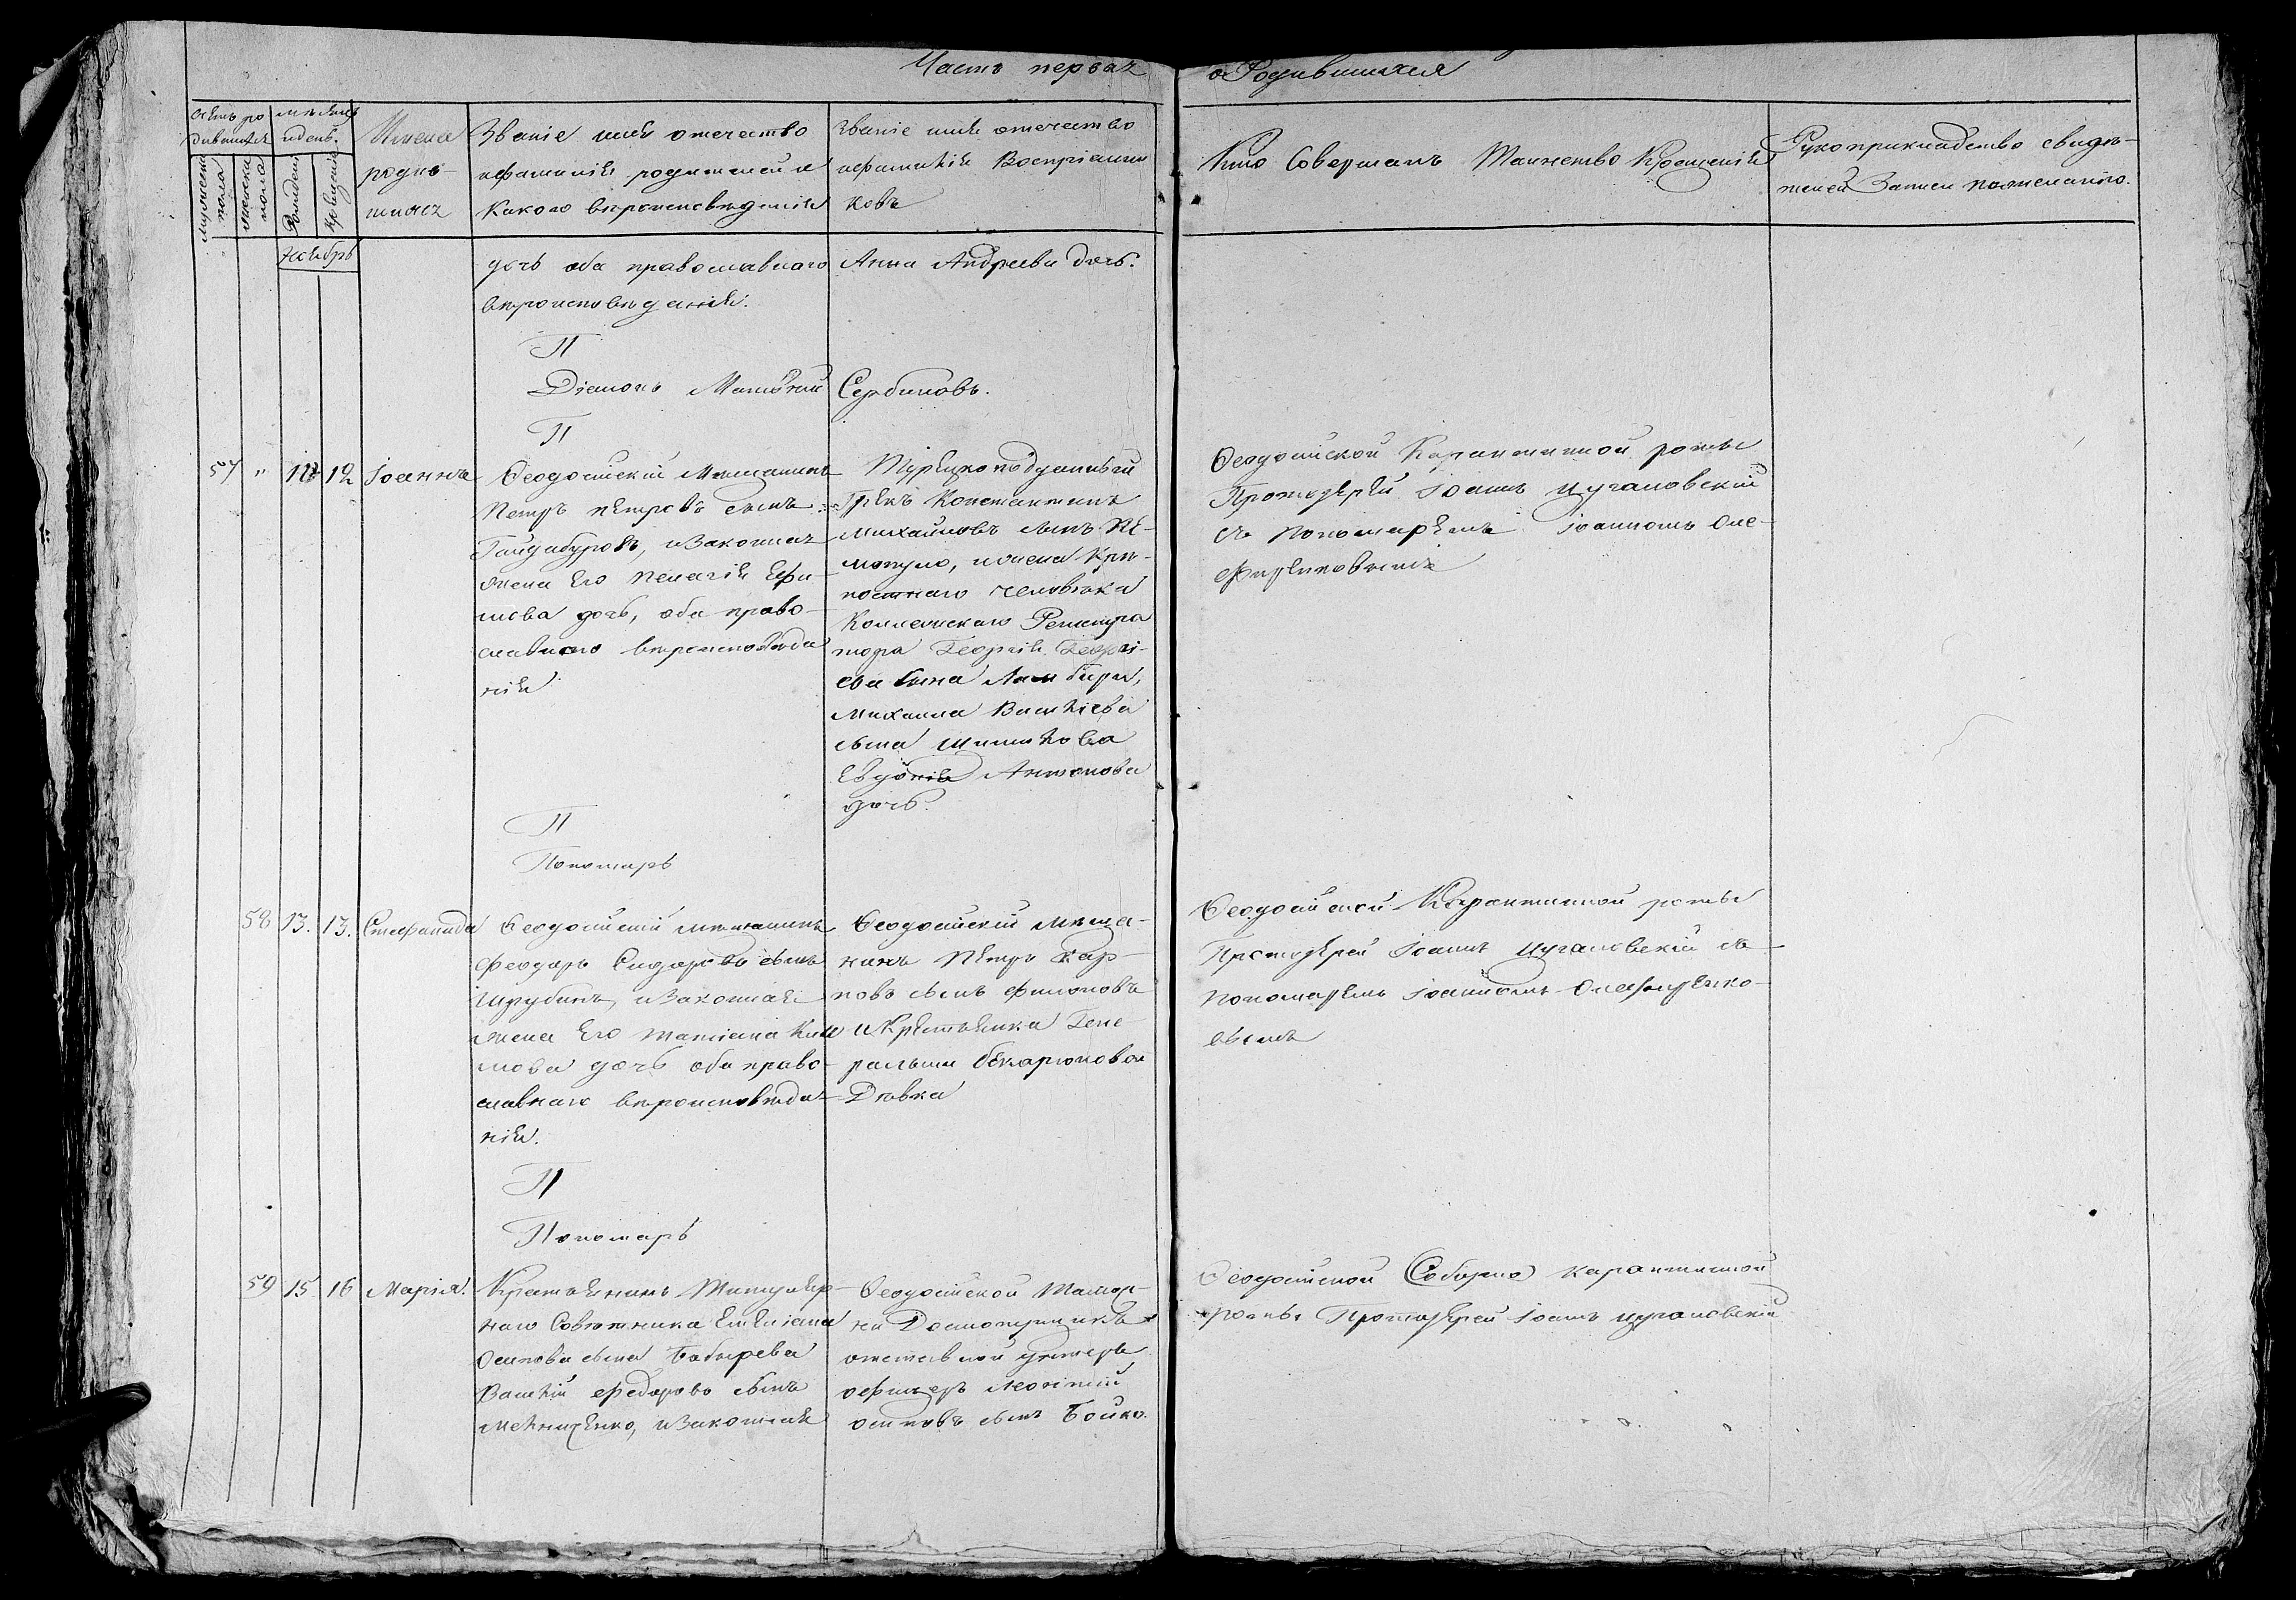 Часть первая о Родившихся
Счетъ родившихся
Месяцъ и день.
мужеска пола
женска пола
Рожденія
Крещенія
Имена родившихся
Званіе имя отечество
и фамилія родителей и
какого вероисповеданія
Званіе имя отечество
и фамилія Воспріемни
ковъ
Кто Совершалъ Таинство Крещенія
Рукоприкладство свиде-
телей Записи по желанію.
Ноябрь
дочь оба православнаго
вероисповеданія.
Анна Андреева дочь.
П
Діаконъ Матвей Сербиновъ.
П
57 " 11 12 Іоаннъ
Феодосійскій Мещанинъ
Петръ Петровъ сынъ
Гайдабуровъ, и законная
жена Его Пелагія Ефи-
мова дочь, оба право-
славнаго вероисповеда
нія
Турецкоподданный
Грекъ Константинъ
Михайловъ сынъ
и жена Кре-
постнаго человека
Коллежскаго Регистра
тора Георгія Георгі-
ева сына Ламбири,
Михаила Васильева
сына Шишкова
Евдокія Антонова
дочь.
Феодосійской Карантинной роты
Протоіерей Іоаннъ Цугановскій
съ Пономаремъ Іоанномъ Оле-
фиренковымъ
П
Пономарь
58 13. 13. Стефанида
Феодосійскій мещанинъ
Феодоръ Сидоровъ сынъ
Шрубинъ, и законная
жена Его Татіана Кли
мова дочь оба право-
славнаго вероисповеда-
нія.
Феодосійскій Меща-
нинъ Петръ Кар-
повъ сынъ Филоновъ
и Крестьянка Гене-
ральши Бекарюковой
Девка
Феодосійской Карантинной роты
Протоіерей Іоаннъ Цугановскій съ
пономаремъ Іоанномъ Олефиренко-
вымъ
П
Пономарь
59 15 16 Марія.
Крестьянинъ Титуляр-
наго Советника Емеліана
Осипова сына Бабырева
Василій Федоровъ сынъ
Мельниченко, и законная
Феодосійской Тамож-
ни Досмотрщикъ
отставной унтеръ
офицеръ Леонтій
Осиповъ сынъ Бойко.
Феодосійской Собора карантинной
роты Протоіерей Іоаннъ Цугановскій